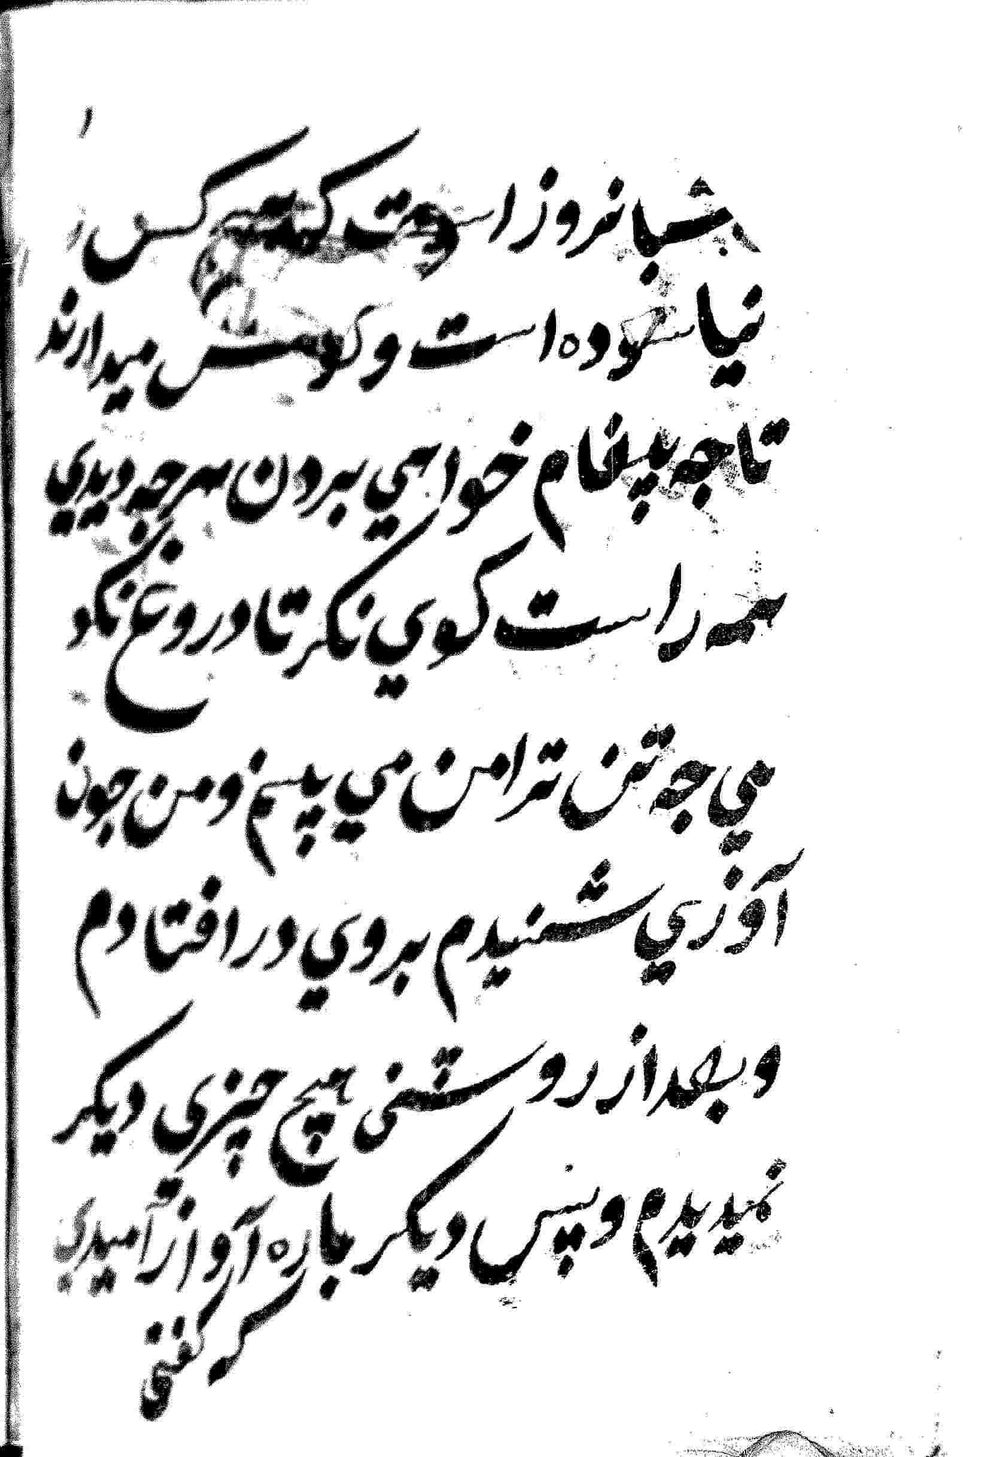 شبانروز است که هیچ کس
نیاسوده است و کوشش میدارند
تا جه پیغام خواهي بردن هر جه دیدي
همه راست کوي نکر تا دروغ نکو
یي جه تن ترا من مي پیسم و من جون
آوزي شنیدم بروي در افتادم
و بعد از روشنی هیچ چیزي دیکر
نمیدیدم و پس دیکر باره آواز آمیدي
که کفتی